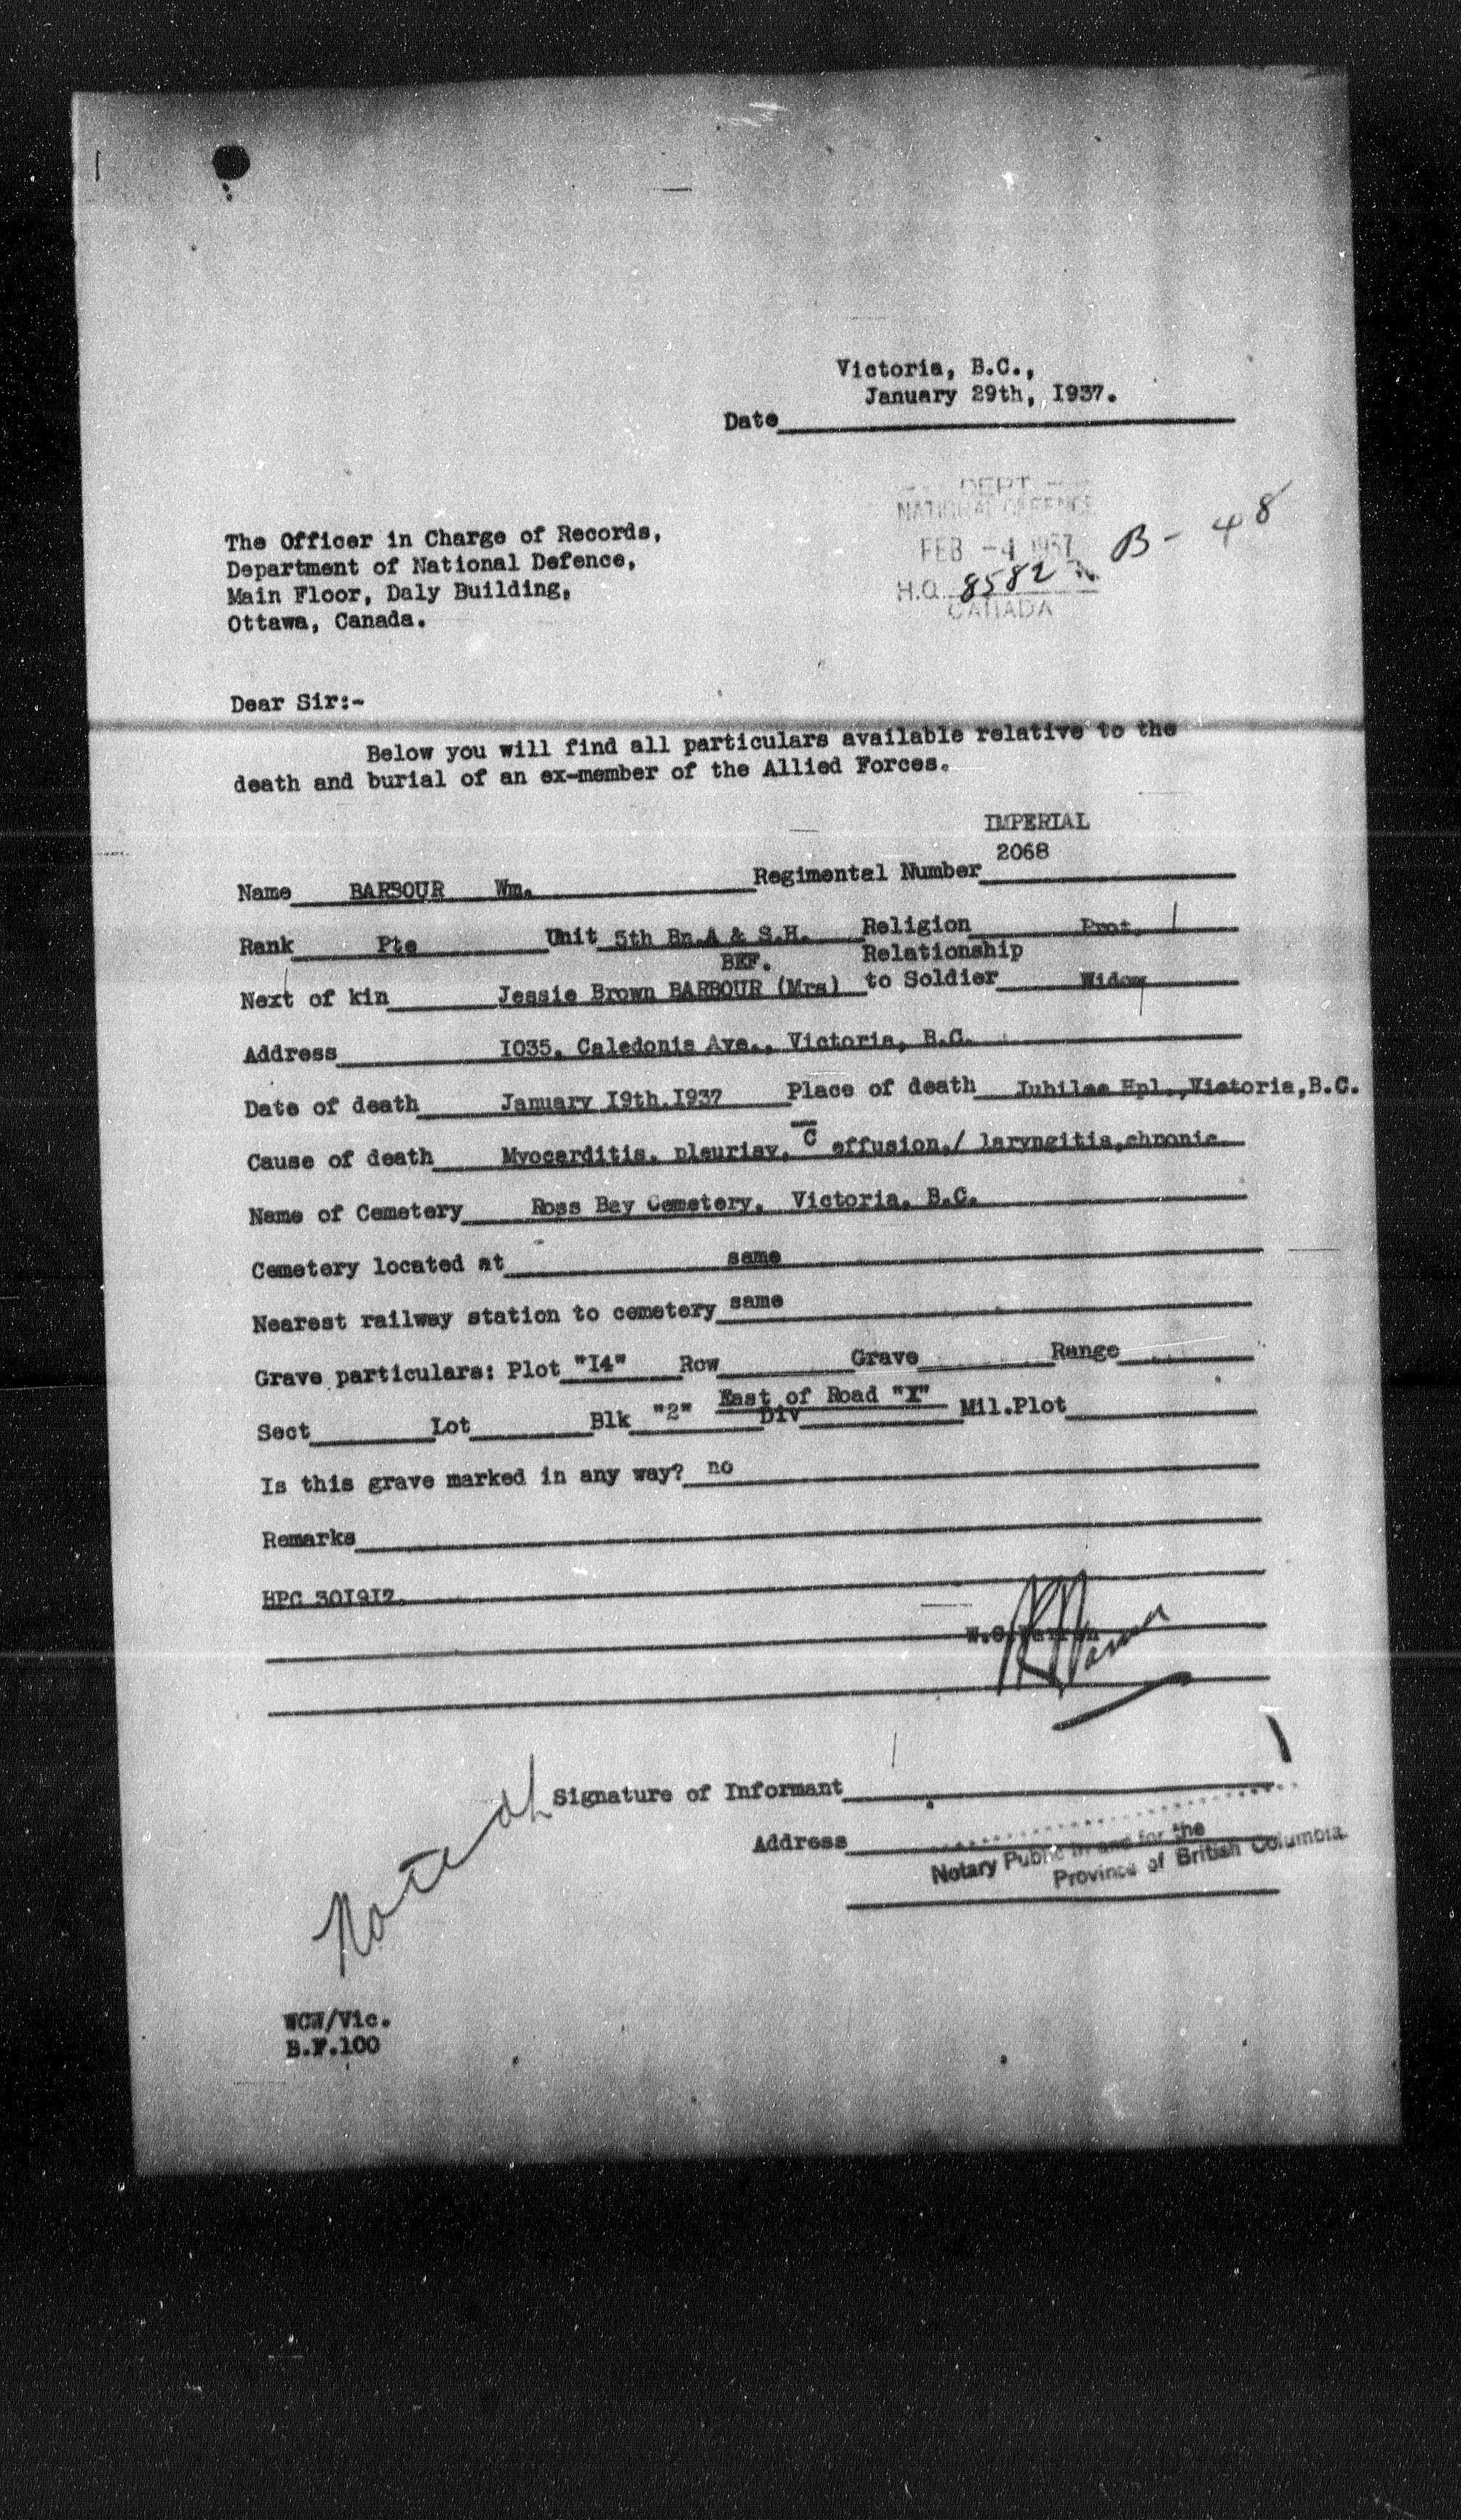 Victoria, B.C.,
January 29th, I937.
Date
DEPT
NATIONAL DEFENCE
FEB -4 1937
B - 48
H.Q. 8582
CANADA
The Officer in Charge of Records,
Department of National Defence,
Main Floor, Daly Building,
Ottawa, Canada.
Dear Sir:-
Below you will find all particulars available relative to the
death and burial of an ex-member of the Allied Forces.
IMPERIAL
Name BARBOUR Wm. Regimental Number 2068
Rank Pte Unit 5th Bn.A & S.H. Religion Prot.
BEF. Relationship
Next of kin Jessie Brown BARBOUR (Mrs) to Soldier Widow
Address I035, Caledonia Ave., Victoria, B.C.
Date of death January I9th.I937 Place of death Jubilee Hpl.,Victoria,B.C.
Cause of death Myocarditis, pleurisy, c̅ effusion,/ laryngitis,chronic
Name of Cemetery Ross Bay Cemetery, Victoria, B.C.
Cemetery located at same
Nearest railway station to cemetery same
Grave particulars: Plot "I4" Row Grave Range
East of Road "I"
Sect Lot Blk "2" Div Mil.Plot
Is this grave marked in any way? no
Remarks
HPC 30I9I2.
W.C.Warren
Signature of Informant
Address
Notary Public in and for the
Province of British Columbia
Noted
WCW/Vic.
B.F.100